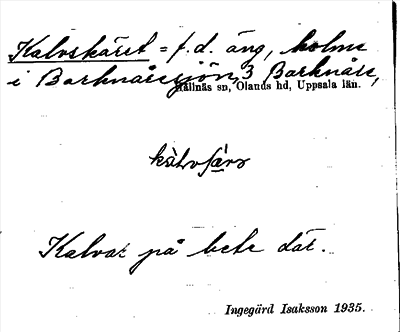 Kalvskäret = f.d. äng, holme
i Barknåresjön, 3 Barknåre,
Hållnäs sn, Olands hd, Uppsala län.
Kalvar på bete där.
Ingegärd Isaksson 1935.